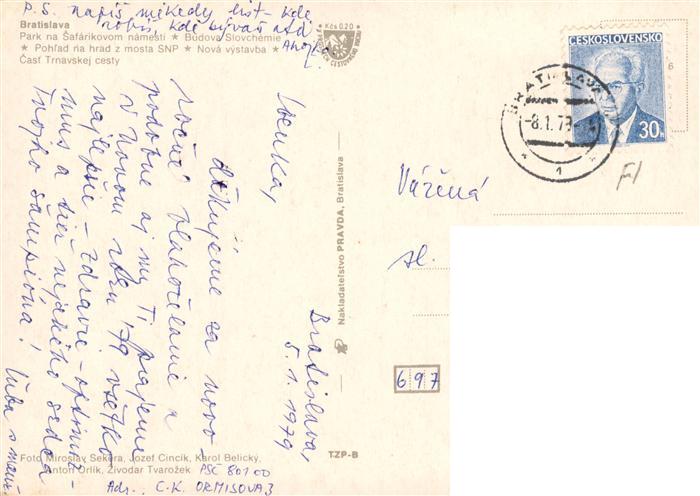 P.S. napíš niekedy list - kde
robíš, kde bývaš atď
Bratislava
Park na Šafárikovom námestí ★ Budova Slovchémie
★ Pohľad na hrad z mosta SNP ★ Nová výstavba ★
Časť Trnavskej cesty
Kčs 0,20
ČESKOSLOVENSKO
30h
BRATISLAVA
-8.1.79-
1
FI
Bratislava,
5. 1. 1979
Lenka,
ďakujeme za novo-
ročné blahoželanie a
podobne aj my Ti prajeme
v Novom roku '79 všetko
najlepšie - zdravie - optimiz-
mus a tiež nejakého srdca
Tvojho šampióna!
Ľuba s mam.
Nakladateľstvo PRAVDA, Bratislava
Vážená
sl.
697
TZP-B
Foto Miroslav Sekera, Jozef Cincík, Karol Belický,
Anton Orlík, Živodar Tvarožek
PSČ 801 00
Adr. C.K. ORMISOVA 3